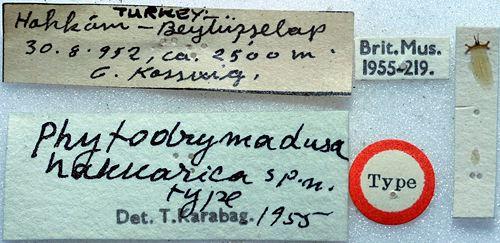 TURKEY:-
Hakkâri - Beytüşşebap
30.8.952, ca. 2500 m.
C. Kosswig.
Brit. Mus.
1955-219.
Phytodrymadusa
hakkarica sp.n.
type
Det. T. Karabag. 1955
Type